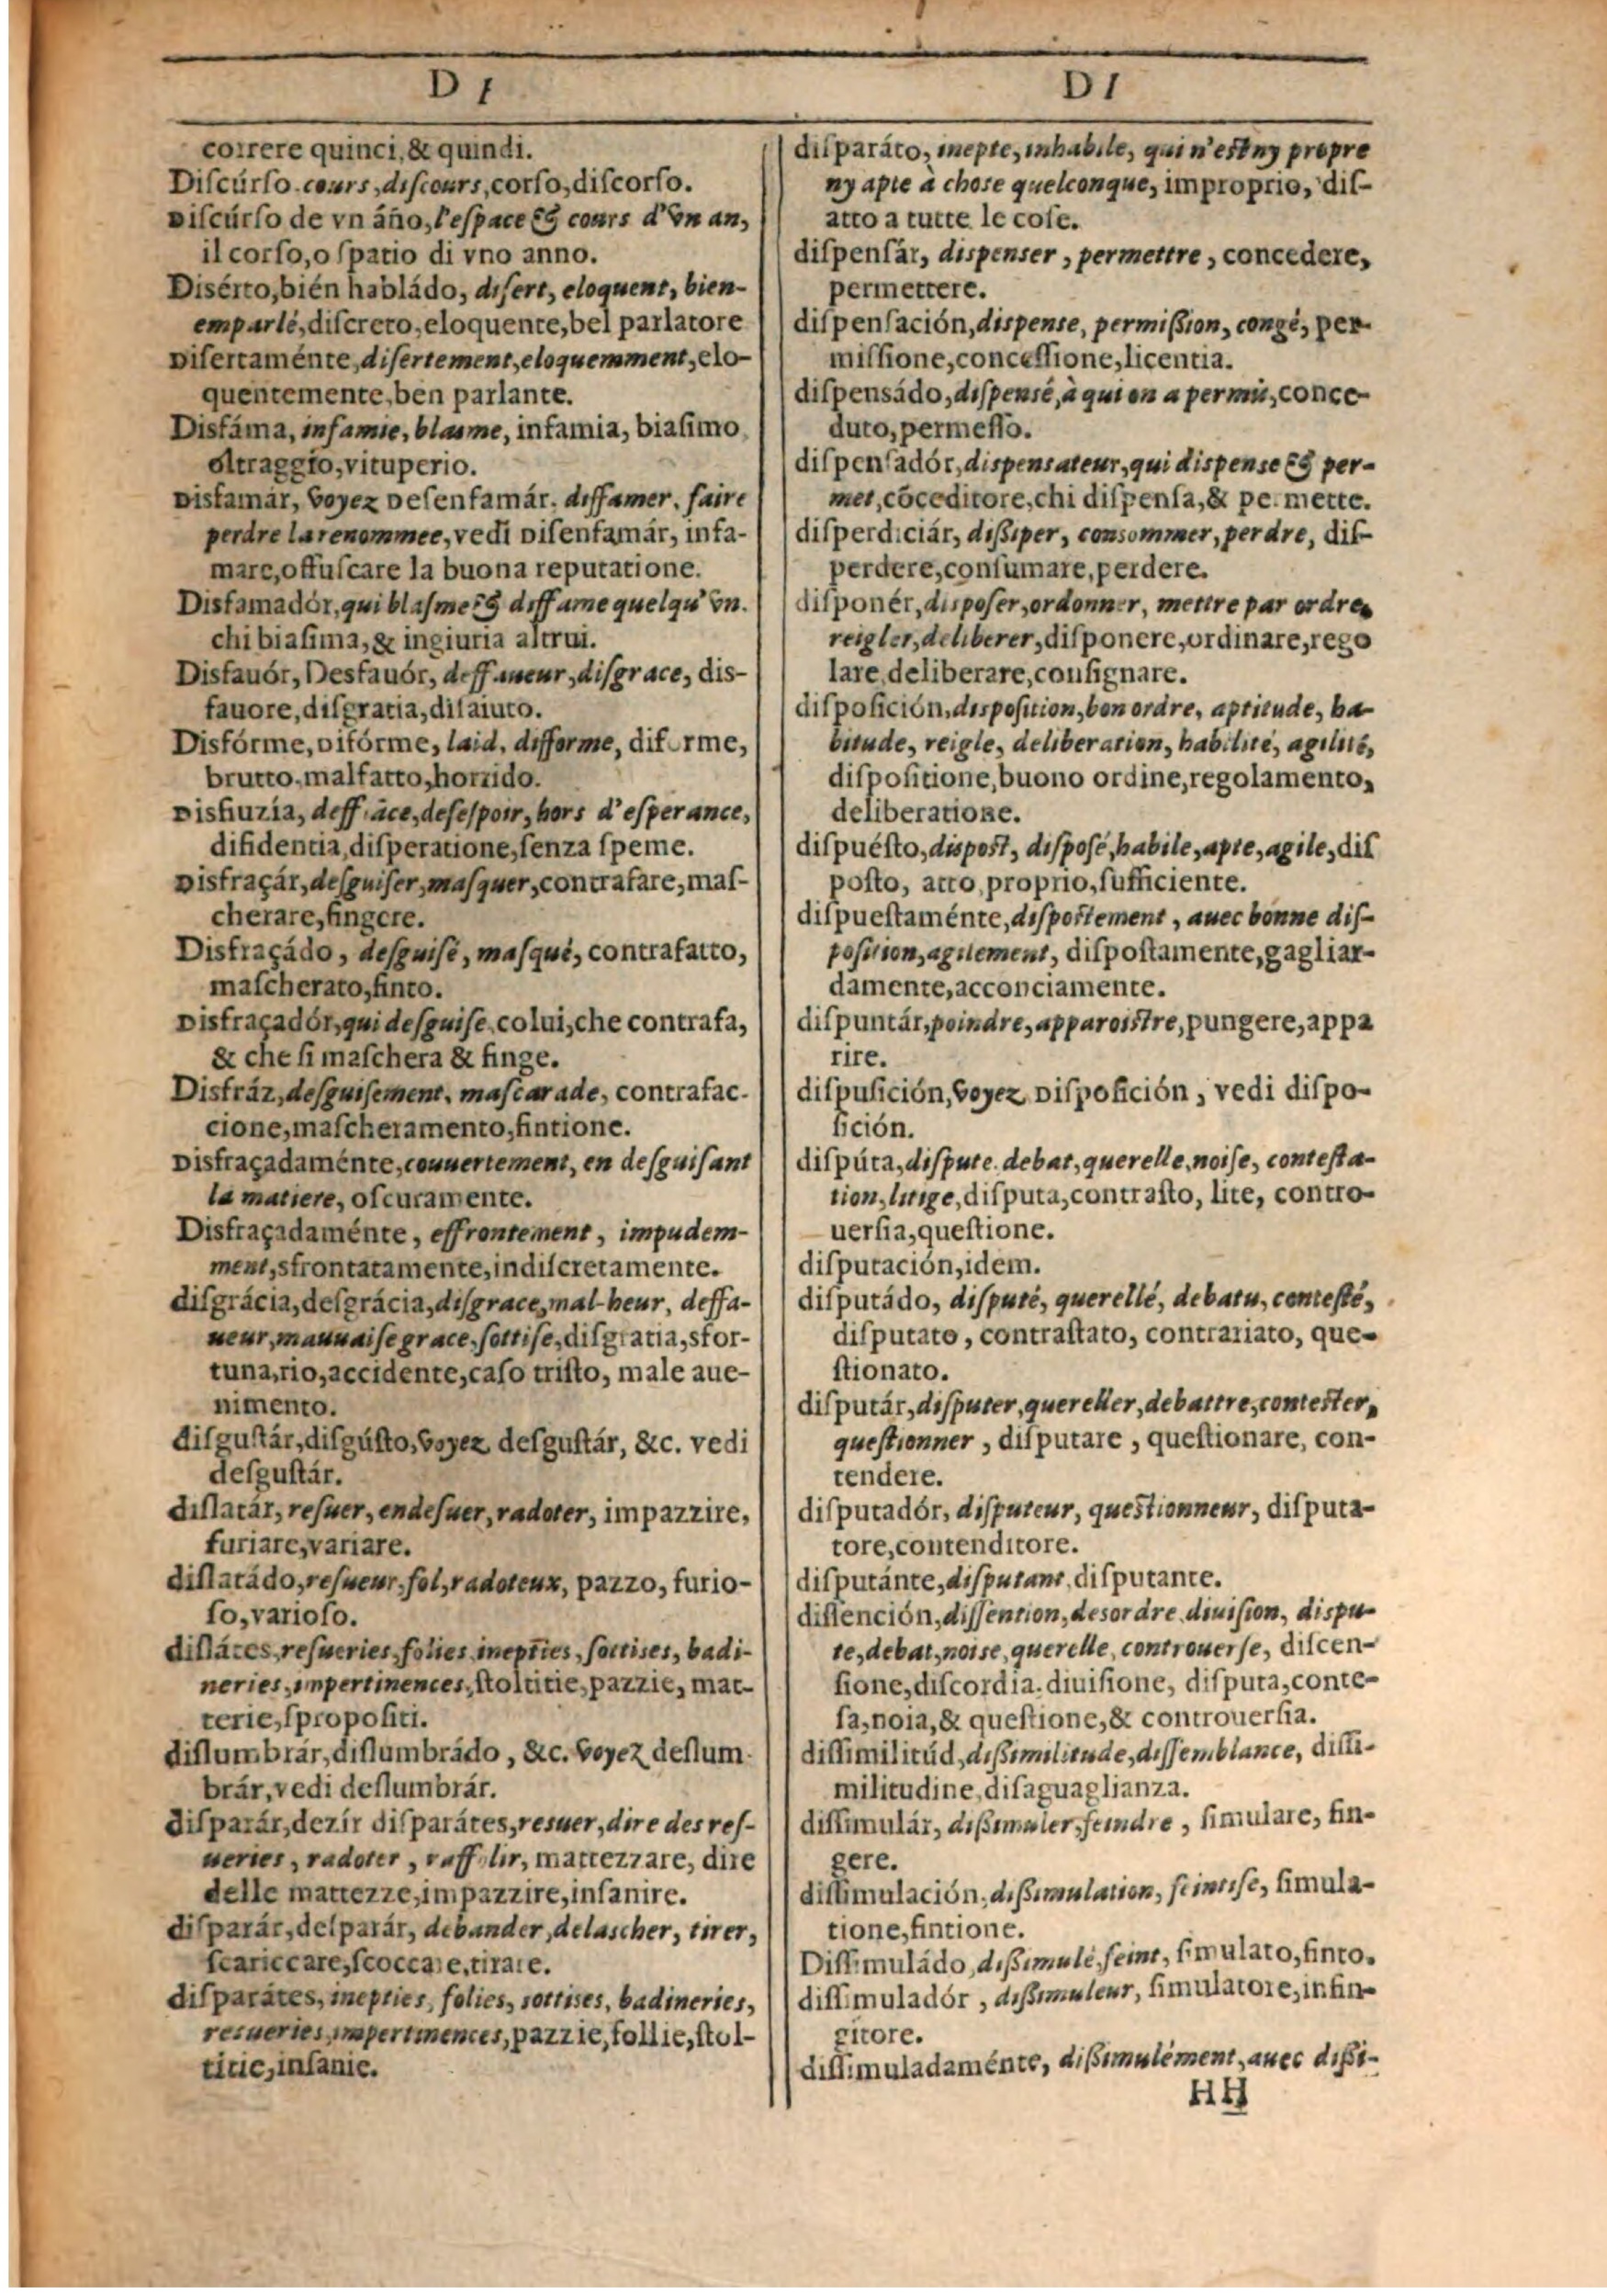 D I
correre quinci, & quindi.
Diſcúrſo. cours, diſcours, corſo, diſcorſo.
Diſcúrſo de vn áño, l'eſpace & cours d'vn an,
il corſo, o ſpatio di vno anno.
Disérto, bién habládo, diſert, eloquent, bien-
emparlé, diſcreto, eloquente, bel parlatore
Diſertaménte, diſertement, eloquemment, elo-
quentemente, ben parlante.
Disfáma, infamie, blasme, infamia, biaſimo,
oltraggio, vituperio.
Disfamár, voyez Deſenfamár. diffamer, faire
perdre la renommee, vedi Diſenfamár, infa-
mare, offuſcare la buona reputatione.
Disfamadór, qui blaſme & diffame quelqu'vn.
chi biaſima, & ingiuria altrui.
Disfauór, Desfauór, deffaueur, diſgrace, dis-
fauore, diſgratia, diſaiuto.
Disfórme, Difórme, laid, difforme, diforme,
brutto, malfatto, horrido.
Disfiuzía, deffiāce, deſeſpoir, hors d'eſperance,
difidentia, diſperatione, ſenza ſpeme.
Disfraçár, deſguiſer, maſquer, contrafare, maſ-
cherare, fingere.
Disfraçádo, deſguiſé, maſqué, contrafatto,
maſcherato, finto.
Disfraçadór, qui deſguiſe, colui, che contrafa,
& che ſi maſchera & finge.
Disfráz, deſguiſement, maſcarade, contrafac-
cione, maſcheramento, fintione.
Disfraçadaménte, couuertement, en deſguiſant
la matiere, oſcuramente.
Disfraçadaménte, effrontement, impudem-
ment, sfrontatamente, indiſcretamente.
diſgrácia, deſgrácia, diſgrace, mal-heur, deffa-
ueur, mauuaiſe grace, ſottiſe, diſgratia, sfor-
tuna, rio, accidente, caſo triſto, male aue-
nimento.
diſguſtár, diſgúſto, voyez deſguſtár, &c. vedi
deſguſtár.
diſlatár, reſuer, endeſuer, radoter, impazzire,
furiare, variare.
diſlatádo, reſueur, fol, radoteux, pazzo, furio-
ſo, varioſo.
diſlátes, reſueries, folies, inepties, ſottises, badi-
neries, impertinences, ſtoltitie, pazzie, mat-
terie, ſpropoſiti.
diſlumbrár, diſlumbrádo, &c. voyez deſlum-
brár, vedi deſlumbrár.
diſparár, dezír diſparátes, resuer, dire des reſ-
ueries, radoter, raffolir, mattezzare, dire
delle mattezze, impazzire, inſanire.
diſparár, deſparár, debander, delascher, tirer,
ſcariccare, ſcoccare, tirare.
diſparátes, inepties, folies, sottises, badineries,
resueries, impertinences, pazzie, follie, ſtol-
titie, inſanie.
D I
diſparáto, inepte, inhabile, qui n'eſt ny propre
ny apte à chose quelconque, improprio, diſ-
atto a tutte le coſe.
diſpenſár, dispenser, permettre, concedere,
permettere.
diſpenſación, dispense, permiſſion, congé, per-
miſſione, conceſſione, licentia.
diſpensádo, diſpensé, à qui on a permis, conce-
duto, permeſſo.
diſpenſadór, dispensateur, qui dispense & per-
met, cōceditore, chi diſpenſa, & permette.
diſperdiciár, diſſiper, consommer, perdre, diſ-
perdere, conſumare, perdere.
diſponér, disposer, ordonner, mettre par ordre,
reigler, deliberer, diſponere, ordinare, rego
lare, deliberare, conſignare.
diſpoſición, dispoſition, bon ordre, aptitude, ha-
bitude, reigle, deliberation, habilité, agilité,
diſpoſitione, buono ordine, regolamento,
deliberatione.
diſpuéſto, dispoſt, diſpoſé, habile, apte, agile, diſ
poſto, atto, proprio, ſufficiente.
diſpueſtaménte, diſpoſtement, auec bonne diſ-
poſition, agilement, diſpoſtamente, gagliar-
damente, acconciamente.
diſpuntár, poindre, apparoiſtre, pungere, appa
rire.
diſpuſición, voyez Diſpoſición, vedi diſpo-
ſición.
diſpúta, diſpute, debat, querelle, noiſe, conteſta-
tion, litige, diſputa, contraſto, lite, contro-
uerſia, queſtione.
diſputación, idem.
diſputádo, diſputé, querellé, debatu, conteſté,
diſputato, contraſtato, contrariato, que-
ſtionato.
diſputár, diſputer, quereller, debattre, conteſter,
queſtionner, diſputare, queſtionare, con-
tendere.
diſputadór, diſputeur, queſtionneur, diſputa-
tore, contenditore.
diſputánte, diſputant, diſputante.
diſſención, diſſention, desordre, diuiſion, dispu-
te, debat, noise, querelle, controuerſe, diſcen-
ſione, diſcordia, diuiſione, diſputa, conte-
ſa, noia, & queſtione, & controuerſia.
diſſimilitúd, diſſimilitude, diſſemblance, diſſi-
militudine, diſaguaglianza.
diſſimulár, diſſimuler, feindre, ſimulare, fin-
gere.
diſſimulación, diſſimulation, feintiſe, ſimula-
tione, fintione.
Diſſimuládo, diſſimulé, feint, ſimulato, finto.
diſſimuladór, diſſimuleur, ſimulatore, infin-
gitore.
diſſimuladaménte, diſſimulément, auec diſſi-
HH